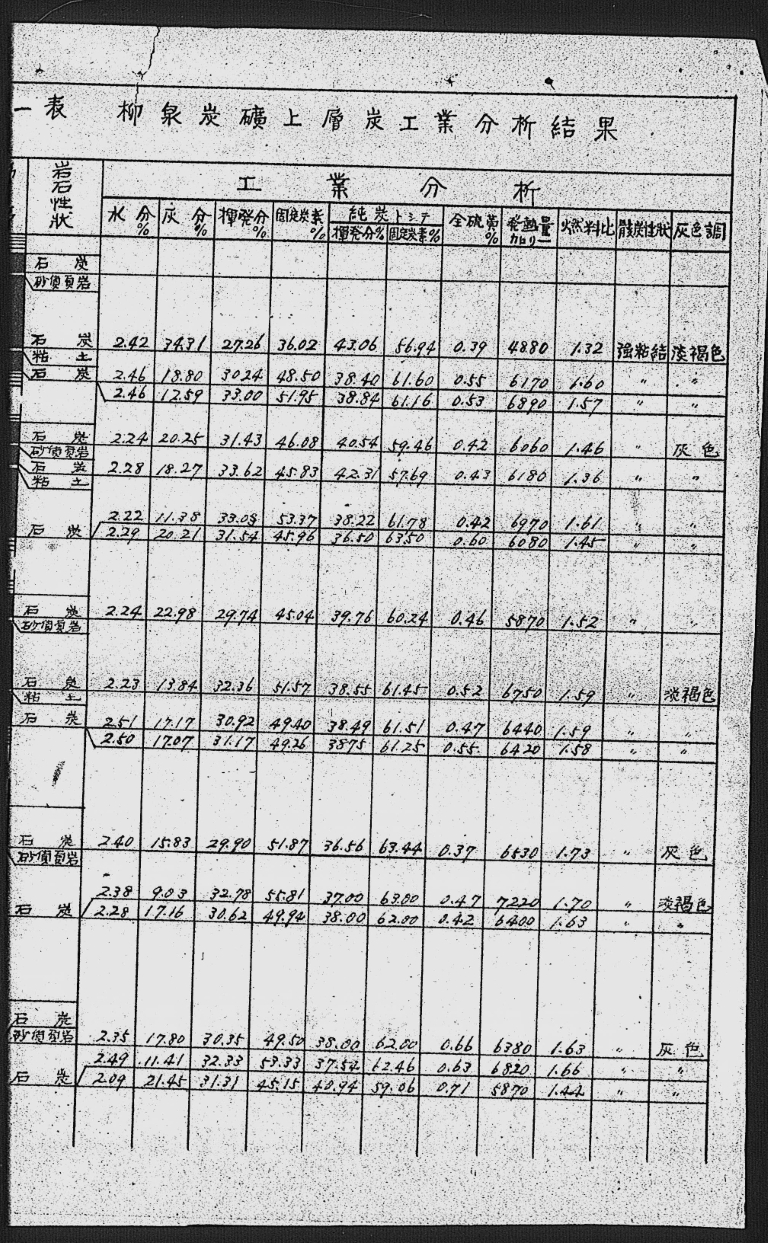 一表 柳泉炭礦上層炭工業分析結果
岩石性状 工業分析
水分% 灰分% 揮発分% 固定炭素% 純炭トシテ 全硫黄% 発熱量カロリー 燃料比 骸炭性状 灰色調
揮発分% 固定炭素%
石炭
砂質頁岩
石炭 2.42 34.31 27.26 36.02 43.06 56.94 0.39 4880 1.32 強粘結 淡褐色
粘土
石炭 2.46 18.80 30.24 48.50 38.40 61.60 0.55 6170 1.60 〃 〃
2.46 12.59 33.00 51.95 38.84 61.16 0.53 6890 1.57 〃 〃
石炭 2.24 20.25 31.43 46.08 40.54 59.46 0.42 6060 1.46 〃 灰色
砂質頁岩
石炭 2.28 18.27 33.62 45.83 42.31 57.69 0.43 6180 1.36 〃 〃
粘土
2.22 11.38 33.03 53.37 38.22 61.78 0.42 6970 1.61 〃 〃
石炭 2.29 20.21 31.54 45.96 36.50 63.50 0.60 6080 1.45 〃 〃
石炭 2.24 22.98 29.74 45.04 39.76 60.24 0.46 5870 1.52 〃 〃
砂質頁岩
石炭 2.23 13.84 32.36 51.57 38.55 61.45 0.52 6750 1.59 〃 淡褐色
粘土
石炭 2.51 17.17 30.92 49.40 38.49 61.51 0.47 6440 1.59 〃 〃
2.50 17.07 31.17 49.26 38.75 61.25 0.55 6420 1.58 〃 〃
石炭 2.40 15.83 29.90 51.87 36.56 63.44 0.37 6530 1.73 〃 灰色
砂質頁岩
2.38 9.03 32.78 55.81 37.00 63.00 0.47 7220 1.70 〃 淡褐色
石炭 2.28 17.16 30.62 49.94 38.00 62.00 0.42 6400 1.63 〃 〃
石炭
砂質頁岩 2.35 17.80 30.35 49.50 38.00 62.00 0.66 6380 1.63 〃 灰色
2.49 11.41 32.33 53.33 37.54 62.46 0.63 6820 1.66 〃 〃
石炭 2.09 21.45 31.31 45.15 40.94 59.06 0.71 5870 1.44 〃 〃